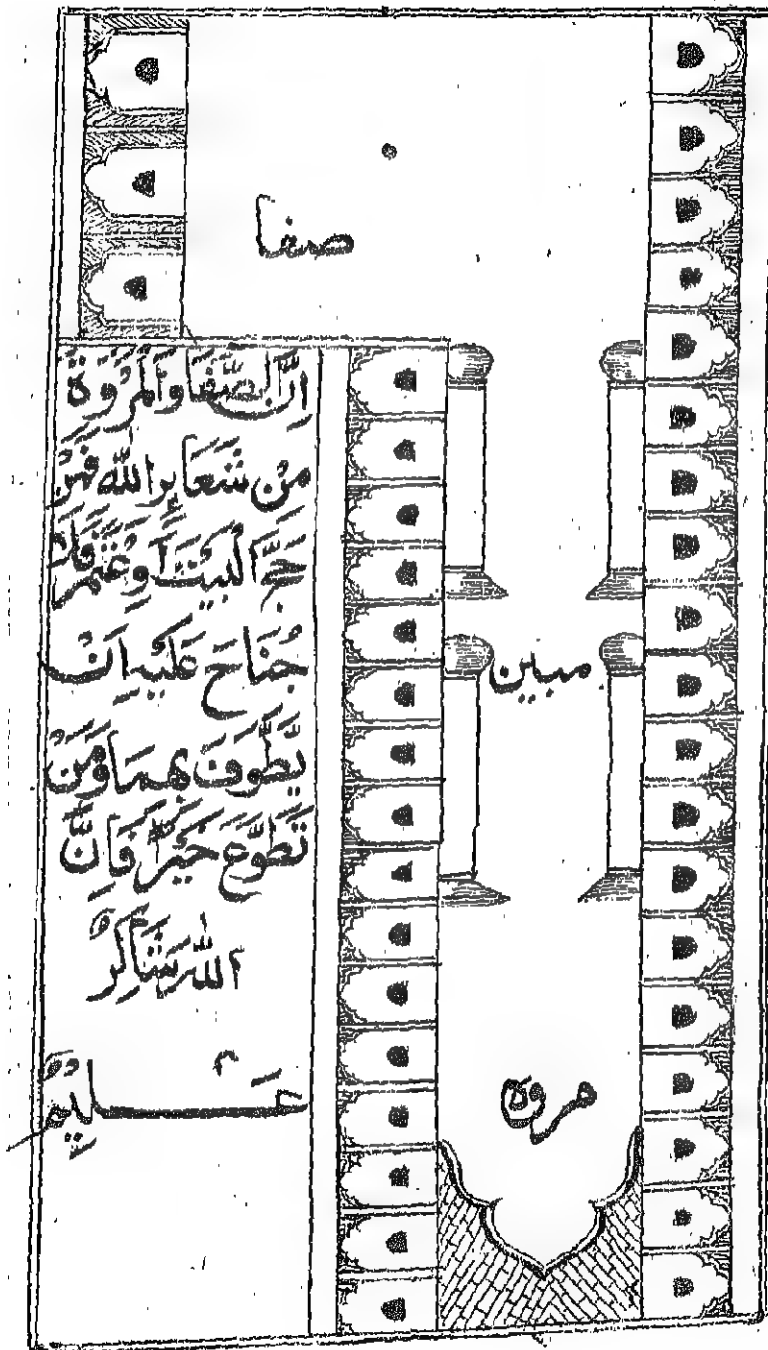 صفا
اِنَّ الصَّفَا وَالْمَرْوَةَ
مِنْ شَعَايِرِ اللّٰهِ فَمَنْ
حَجَّ الْبَيْتَ اَوِ عْتَمَرَ فَلَا
جُنَاحَ عَلَيْهِ اَنْ
يَّطَّوَّفَ بِهِمَا وَمَنْ
تَطَوَّعَ خَيْرًا فَاِنَّ
اللّٰهَ شَاكِرٌ
عَلِيْمٌ
میین
مروہ